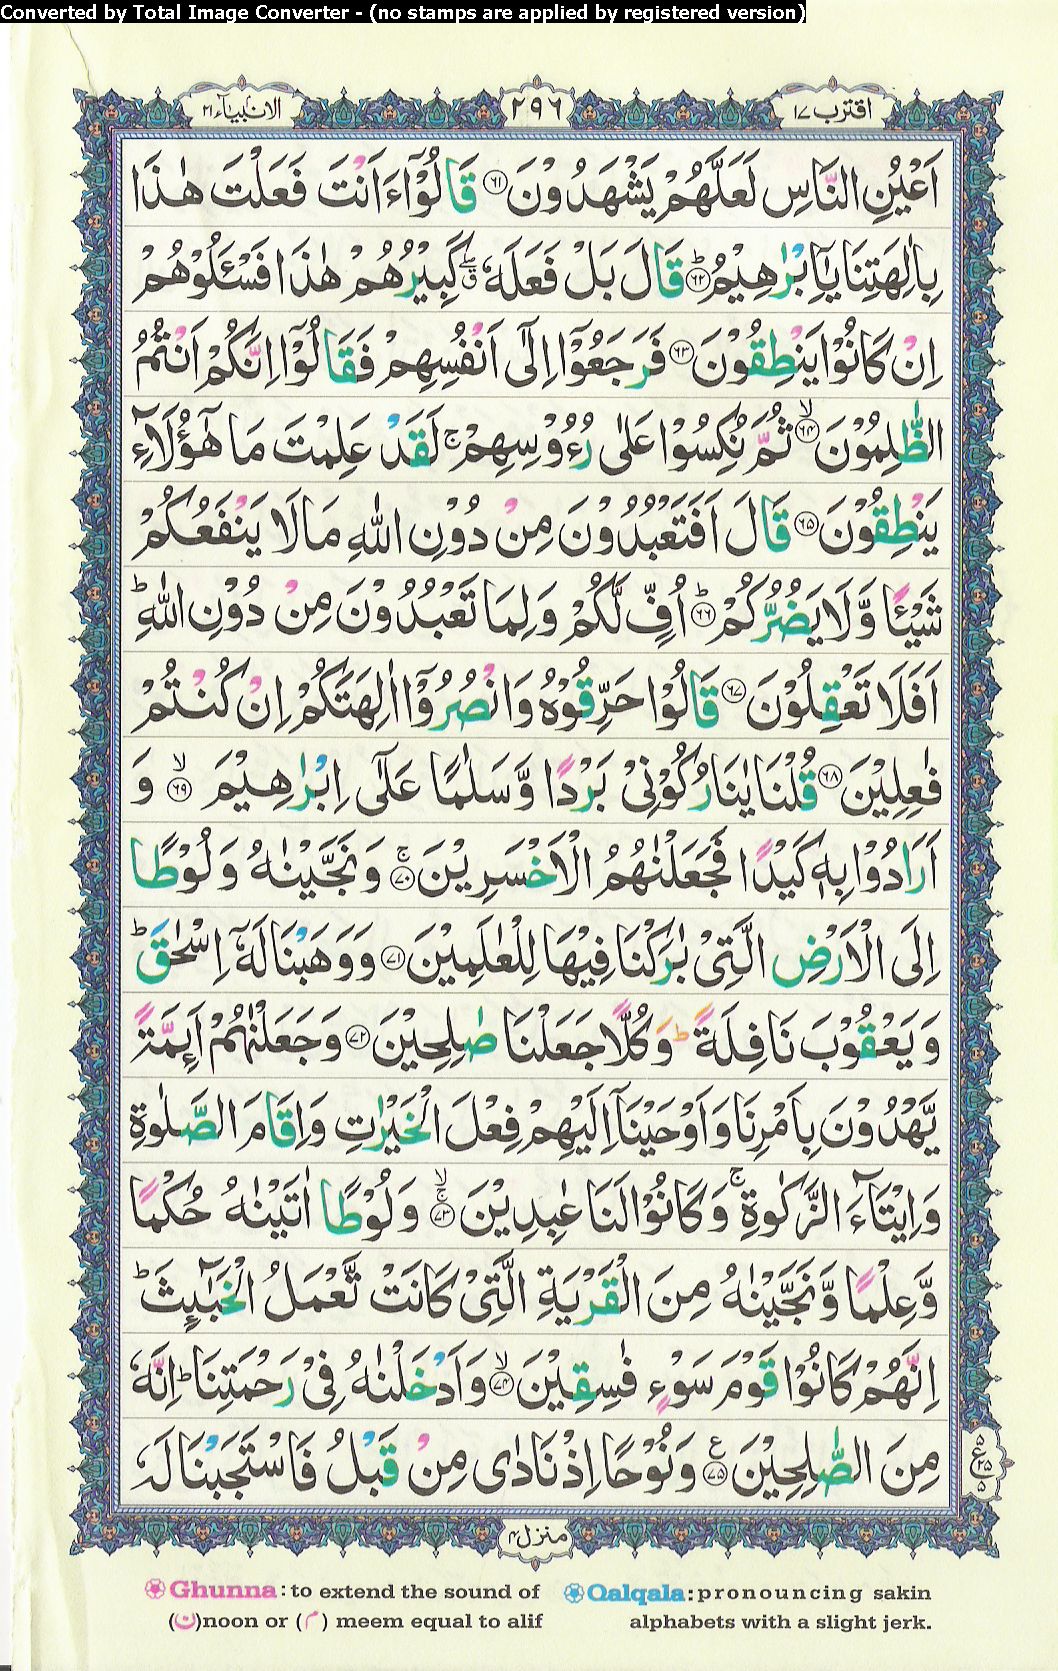 Converted by Total Image Converter - (no stamps are applied by registered version)
اقترب ١٧
٢٩٦
الانبيآء ٢١
اَعْيُنِ النَّاسِ لَعَلَّهُمْ يَشْهَدُوْنَ ۝٦١ قَالُوْٓا ءَاَنْتَ فَعَلْتَ هٰذَا
بِاٰلِهَتِنَا يٰٓاِبْرٰهِيْمُ ۝٦٢ؕ قَالَ بَلْ فَعَلَهٗ ۖۗ كَبِيْرُهُمْ هٰذَا فَسْـَٔلُوْهُمْ
اِنْ كَانُوْا يَنْطِقُوْنَ ۝٦٣ فَرَجَعُوْٓا اِلٰٓى اَنْفُسِهِمْ فَقَالُوْٓا اِنَّكُمْ اَنْتُمُ
الظّٰلِمُوْنَ ۝٦٤ۙ ثُمَّ نُكِسُوْا عَلٰى رُءُوْسِهِمْ ۚ لَقَدْ عَلِمْتَ مَا هٰٓؤُلَآءِ
يَنْطِقُوْنَ ۝٦٥ قَالَ اَفَتَعْبُدُوْنَ مِنْ دُوْنِ اللّٰهِ مَا لَا يَنْفَعُكُمْ
شَيْـًٔا وَّلَا يَضُرُّكُمْ ۝٦٦ؕ اُفٍّ لَّكُمْ وَلِمَا تَعْبُدُوْنَ مِنْ دُوْنِ اللّٰهِ ؕ
اَفَلَا تَعْقِلُوْنَ ۝٦٧ قَالُوْا حَرِّقُوْهُ وَانْصُرُوْٓا اٰلِهَتَكُمْ اِنْ كُنْتُمْ
فٰعِلِيْنَ ۝٦٨ قُلْنَا يٰنَارُ كُوْنِىْ بَرْدًا وَّسَلٰمًا عَلٰٓى اِبْرٰهِيْمَ ۝٦٩ۙ وَ
اَرَادُوْا بِهٖ كَيْدًا فَجَعَلْنٰهُمُ الْاَخْسَرِيْنَ ۝٧٠ۚ وَنَجَّيْنٰهُ وَلُوْطًا
اِلَى الْاَرْضِ الَّتِىْ بٰرَكْنَا فِيْهَا لِلْعٰلَمِيْنَ ۝٧١ وَوَهَبْنَا لَهٗٓ اِسْحٰقَ ؕ
وَيَعْقُوْبَ نَافِلَةً ؕ وَكُلًّا جَعَلْنَا صٰلِحِيْنَ ۝٧٢ وَجَعَلْنٰهُمْ اَئِمَّةً
يَّهْدُوْنَ بِاَمْرِنَا وَاَوْحَيْنَآ اِلَيْهِمْ فِعْلَ الْخَيْرٰتِ وَاِقَامَ الصَّلٰوةِ
وَاِيْتَآءَ الزَّكٰوةِ ۚ وَكَانُوْا لَنَا عٰبِدِيْنَ ۝٧٣ۙۚ وَلُوْطًا اٰتَيْنٰهُ حُكْمًا
وَّعِلْمًا وَّنَجَّيْنٰهُ مِنَ الْقَرْيَةِ الَّتِىْ كَانَتْ تَّعْمَلُ الْخَبٰٓئِثَ ؕ
اِنَّهُمْ كَانُوْا قَوْمَ سَوْءٍ فٰسِقِيْنَ ۝٧٤ۙ وَاَدْخَلْنٰهُ فِىْ رَحْمَتِنَا ؕ اِنَّهٗ
مِنَ الصّٰلِحِيْنَ ۝٧٥ ع وَنُوْحًا اِذْ نَادٰى مِنْ قَبْلُ فَاسْتَجَبْنَا لَهٗ
٥ ع ٢٥ ٥
منزل ٤
Ghunna: to extend the sound of (ن)noon or (م) meem equal to alif
Qalqala: pronouncing sakin alphabets with a slight jerk.